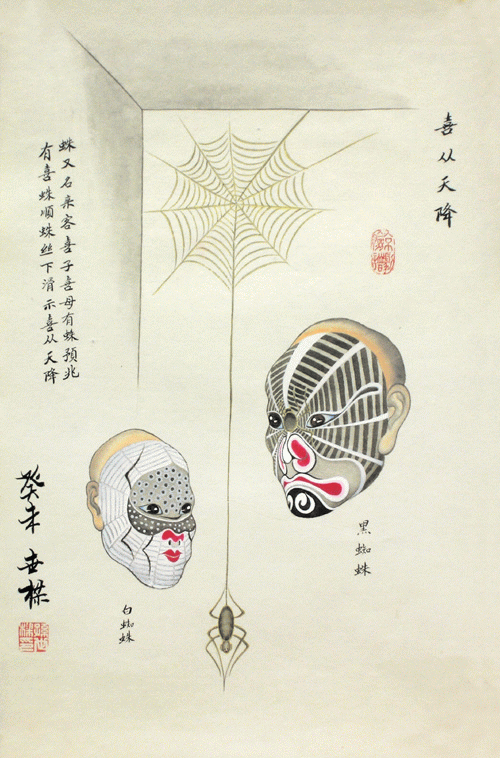 喜从天降
蛛又名亲客喜子喜母有蛛预兆
有喜蛛顺蛛丝下滑示喜从天降
黑蜘蛛
白蜘蛛
癸未